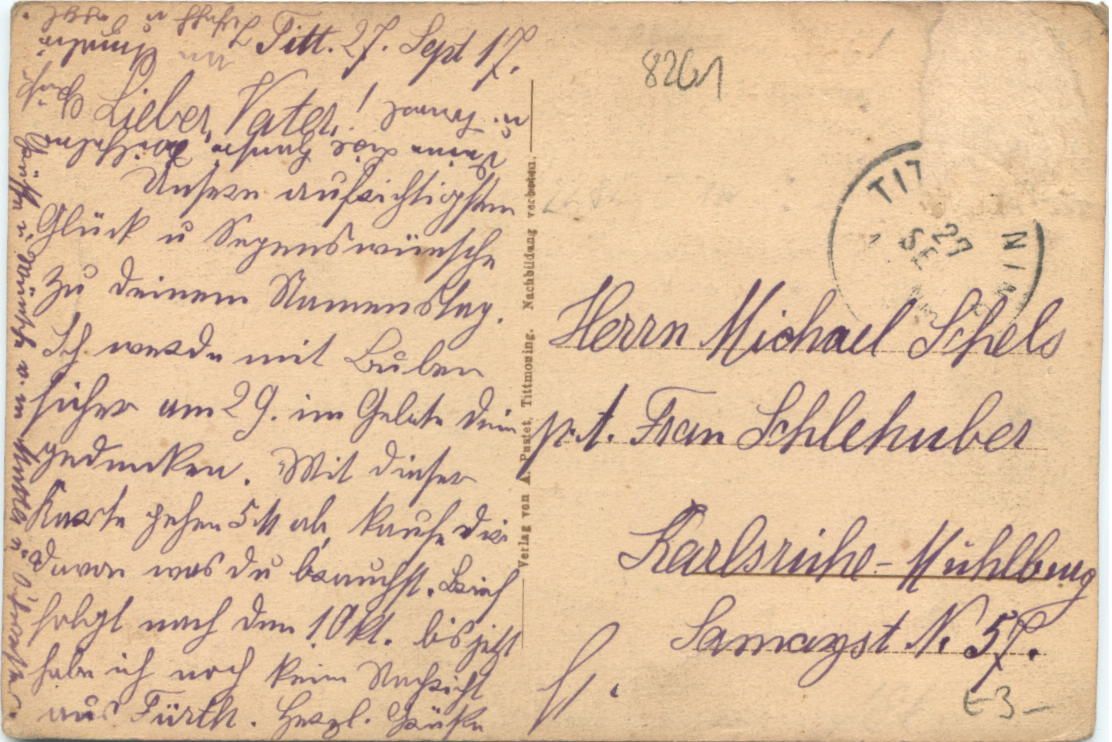 Titt. 27. Sept 17.
Lieber Vater!
Unsern aufrichtigsten
Glück u Segenswünsche
zu deinem Namenstag.
Ich werde mit Buben
sicher am 29. im Gebete dein
gedenken. Mit dieser
Karte gehen 5 M ab, kaufe dir
davon was du brauchst. Brief
folgt nach dem 1 Okt. bis jetzt
habe ich noch keine Nachricht
aus Fürth. Herzl. Grüße
Verlag von A. Pustet, Tittmoning. Nachbildung verboten.
8261
TIT NIN
27
SE
Herrn Michael Schels
p. A. Frau Schlehuber
Karlsruhe-Mühlburg
Samayst N. 57.
E3-